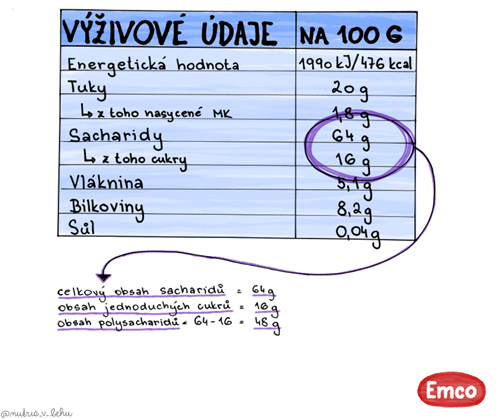 VÝŽIVOVÉ ÚDAJE NA 100 G
Energetická hodnota 1990 kJ/476 kcal
Tuky 20g
↳ z toho nasycené MK 1,8 g
Sacharidy 64 g
↳ z toho cukry 16 g
Vláknina 5,1 g
Bílkoviny 8,2g
Sůl 0,04g
celkový obsah sacharidů = 64g
obsah jednoduchých cukrů = 16g
obsah polysacharidů = 64-16 = 48g
Emco
@nutrie_v_behu